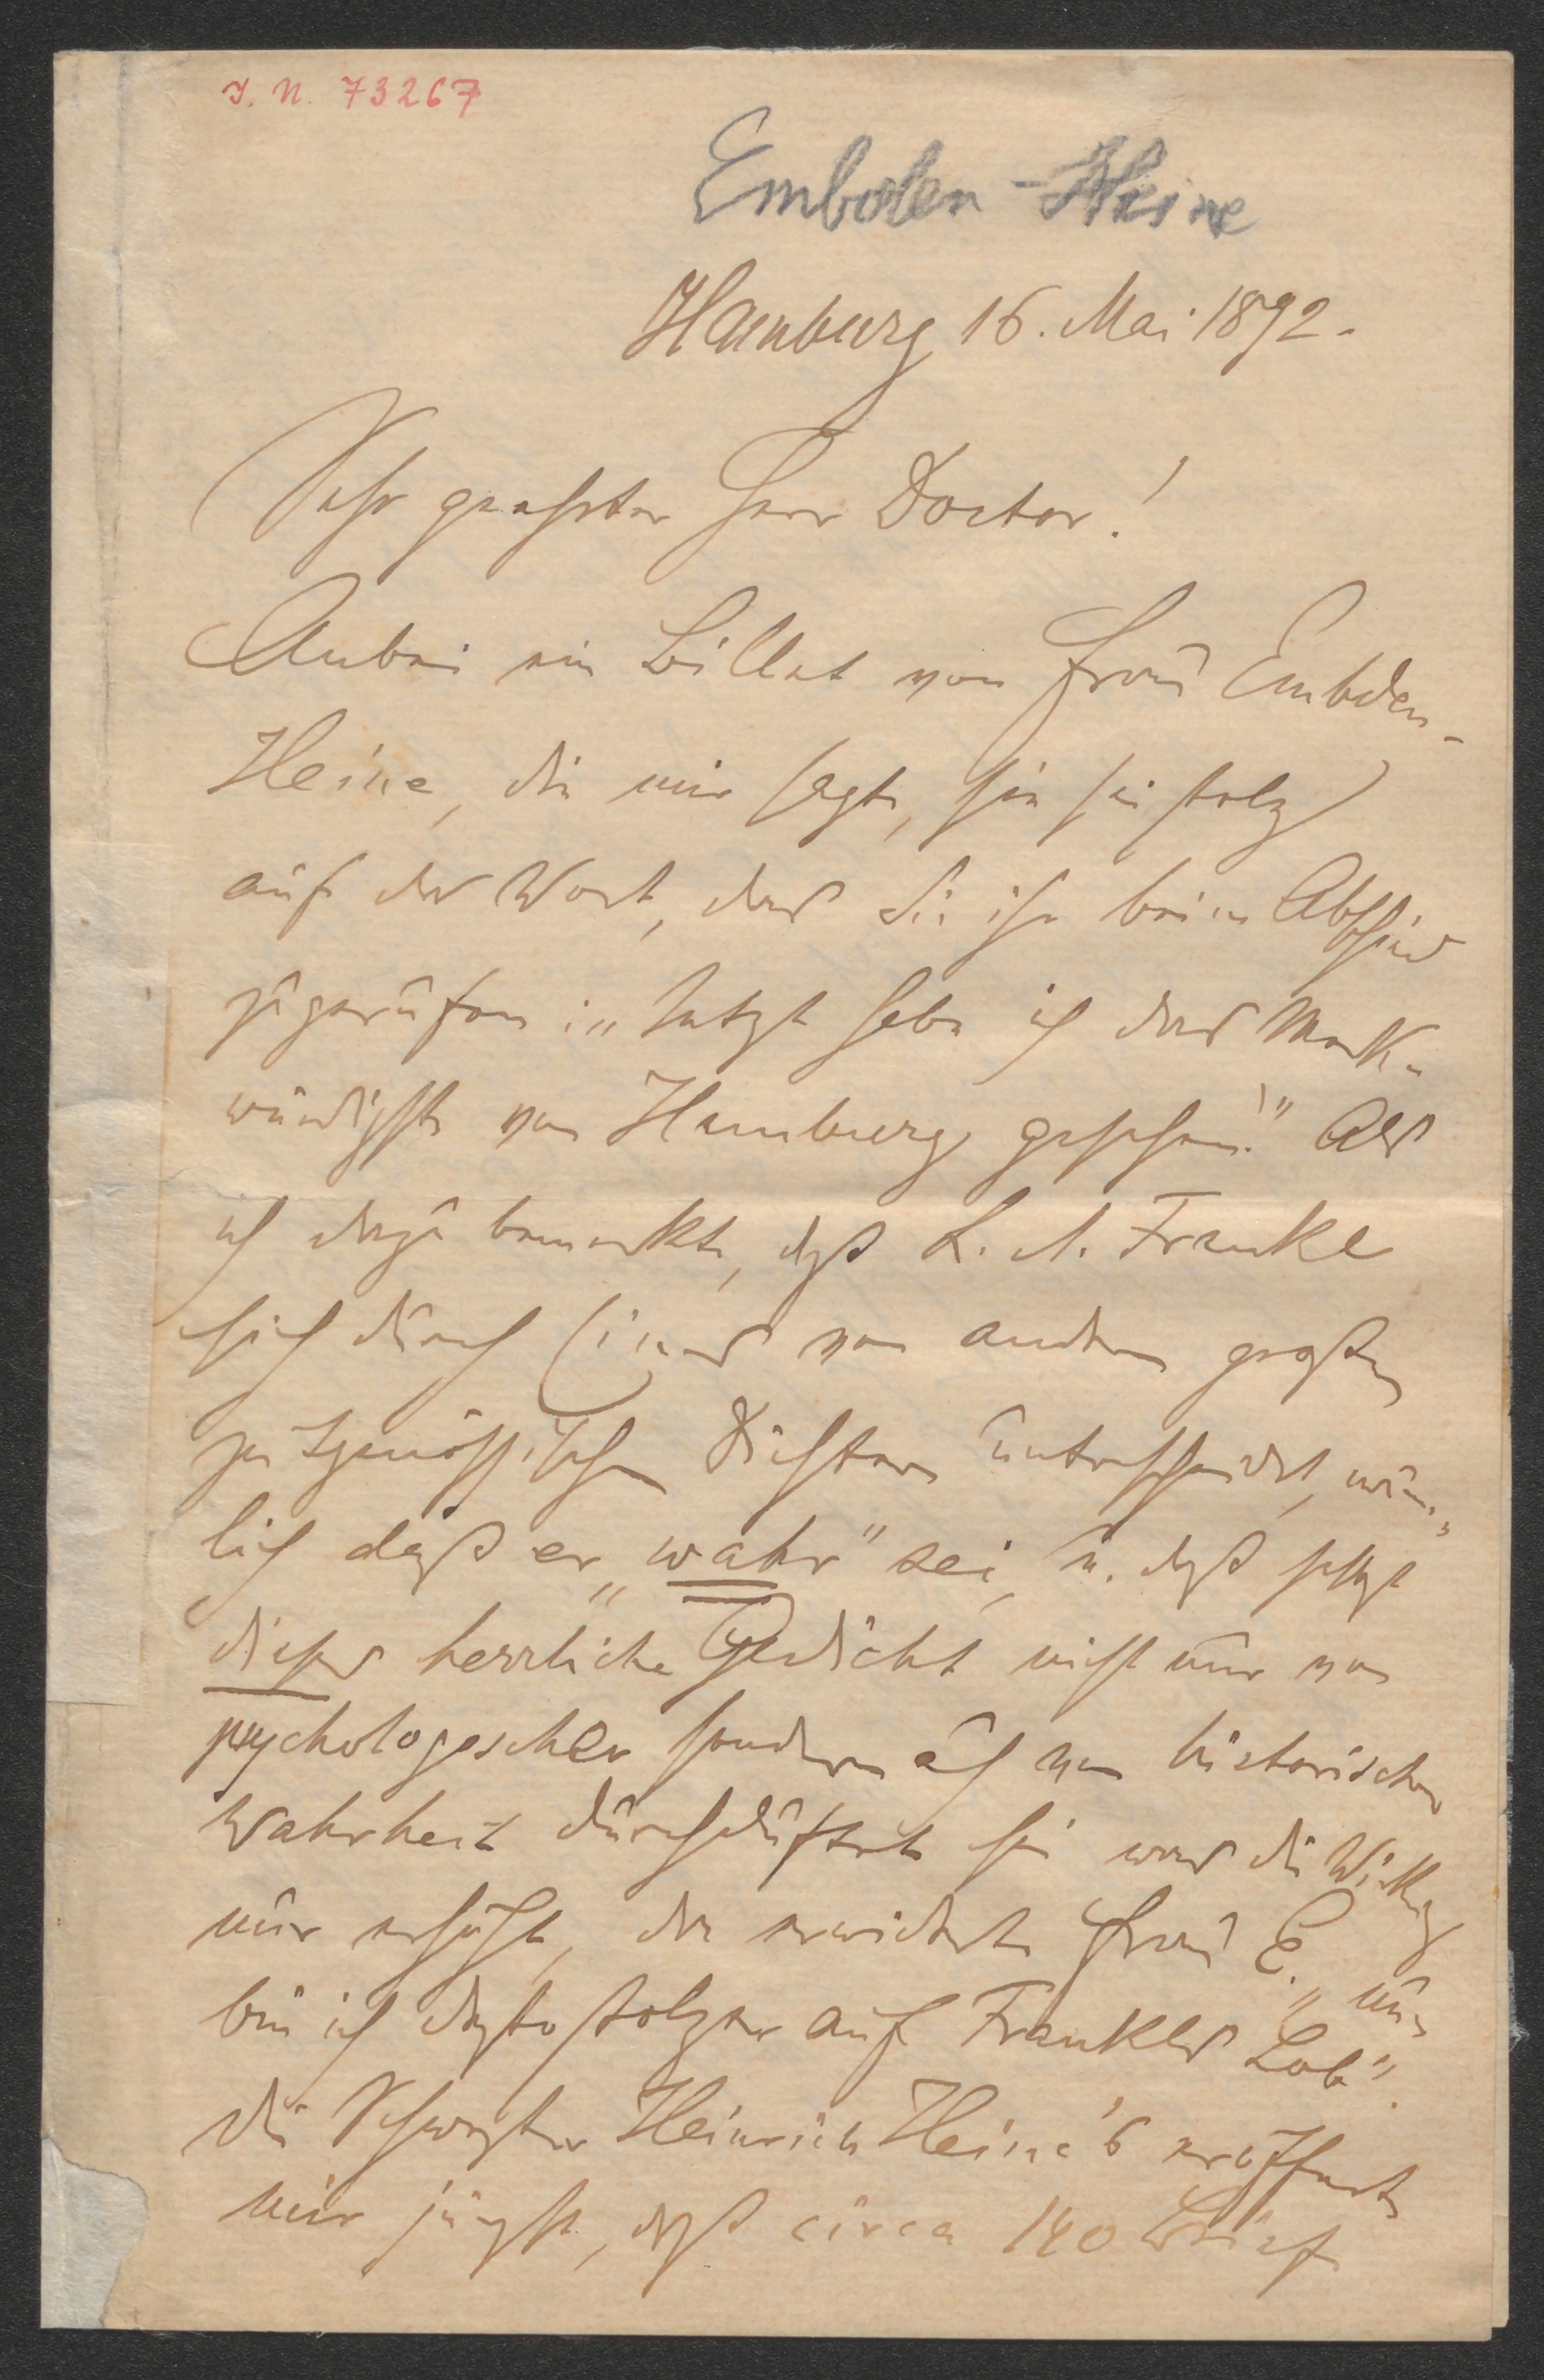 I. N. 73267
Embden-Heine
Hamburg 16. Mai 1892.
Sehr geehrter Herr Doctor!
Anbei ein Billet von Frau Embden-
Heine, die mir sagte, sie sei stolz
auf das Wort, das Sie ihr beim Abschied
zugerufen: „Jetzt habe ich das Merk-
würdigste von Hamburg gesehen!" Als
ich dazu bemerkte, daß L. A. Frankl
sich durch Eines von andern großen
zeitgenössischen Dichtern unterscheidet, näm-
lich daß er „wahr" sei, u. daß selbst
dieses herrliche Gedicht nicht nur von
psychologischer sondern auch von historischer
Wahrheit durchduftet sei was die Wirkung
nur erhöht, da erwiderte Frau E. „nun
bin ich desto stolzer auf Frankls Lob".
Die Schwester Heinrich Heine's eröffnete
mir jüngst, daß circa 140 Briefe